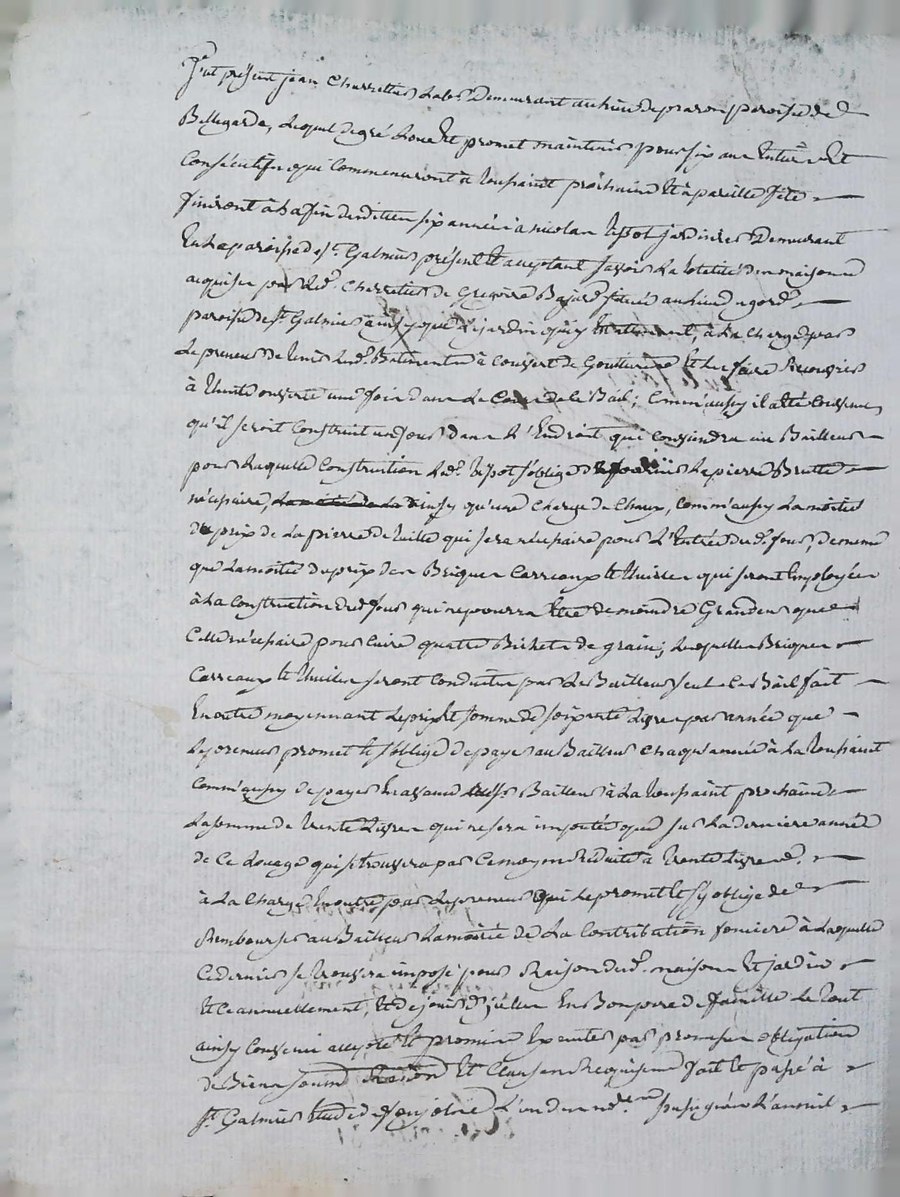 fut présent jean Charretier Labr. Demeurant au lieu de paroisse de
Bellegarde, Lequel de gré Loue Et promet maintenir pour six ans Entiers Et
Consécutifs qui Commenceront à Toussaint prochaine Et à pareille fête
finiront à la fin desdittes six années à nicolas Tepot jardinier Demeurant
En La paroisse de St. Galmier présent Et acceptant savoir La totalité d'un maison
acquise par Led. Charretier de Gregoire Bayard située au lieu
paroisse de St. Galmier ainsy que Le jardin qui y à La Charge par
Le preneur de tenir Led. Batiments à Couvert de Gouttieres Et Les faire Recouvrir
à Tuile ouverte une fois dans Le Cours de Ce Bail; Comm'aussy il a été Convenu
qu'il seroit Construit un four dans L'Endroit qui Conviendra au Bailleur
pour Laquelle Construction Led. Tepot s'oblige de fournir La pierre Brutte
nécéssaire, ainsy qu'une Charge de Chaux, Comm'aussy La moitié
du prix de La pierre de Taille qui sera nécéssaire pour L'Entrée du d. four, de meme
que La moitié du prix des Briques Carreaux Et Tuiles qui seront Employées
à La Construction dud. four qui ne pourra Etre de moindre Grandeur que
Celle nécéssaire pour Cuire quatre Bichets de grain; Lesquelles Briques
Carreaux Et Tuiles seront Conduites par Le Bailleur seul Ce Bail fait
En outre moyennant Le prix Et somme de soixante Livres par année que
Le preneur promet Et s'oblige de payer au Bailleur Chaqu'année à La Toussaint
Comm'aussy de payer En avance Bailleur à La Toussaint prochaine
La somme de Trente Livres qui ne sera imputée que sur La derniere année
de Ce Louage qui se trouvera par Ce moyen Reduite à Trente Livres.
à La Charge En outre par Le preneur qui Le promet Et s'y oblige de
Rembourser au Bailleur La moitié de La Contribution fonciere à Laquelle
Ce dernier se trouvera imposé pour Raison dud. maison Et jardin
Et Ce annuellement, Et de jouir d'jcelles En Bon pere de famille Le Tout
ainsy Convenu accepté Et promis Executer par promesse obligation
de Biens soumis Raison Et Clauses Requises fait Et passé à
St. Galmier Etude de L'an